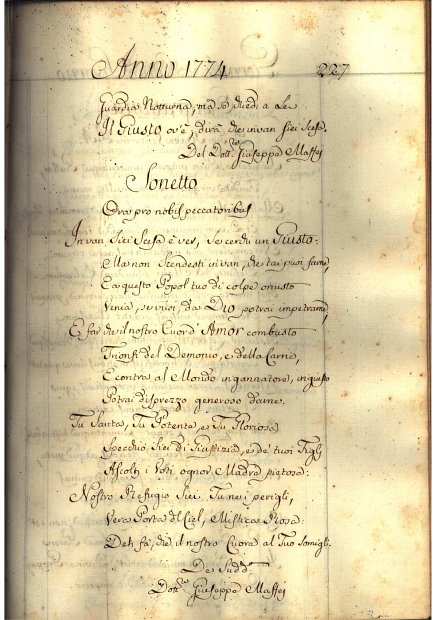 Anno 1774 227
Guardia Notturna, ma se diedi a Lei
Il Giusto ov'è, dirà, che invan sici Scesa.
Del Dott.re Giuseppe Maffei
Sonetto
Ora pro nobis peccatoribus
In van Sici Scesa è ver, se cerchi un Giusto:
Ma non Scendesti in van, che tai puoi farne,
E a questo Popol tuo di colpe onusto
Venia, se vuoi, da Dio potrai impetrarne,
E far che il nostro Cuor d'Amor combusto
Trionfi del Demonio, e della Carne,
E contra al Mondo ingannatore, ingiusto
Potrai disprezzo generoso darne.
Tu Santa, Tu Potente, e Tu Gloriosa
Specchio Siei di Giustizia, e de' tuoi Figlj
Ascolti i Voti ognor Madre pietosa:
Nostro Refugio Siei Tu nei perigli,
Vera Porta del Ciel, Mistica Rosa:
Deh fa, che il nostro Cuore al Tuo Somigli.
Del Sudd.o
Dott.re Giuseppe Maffei